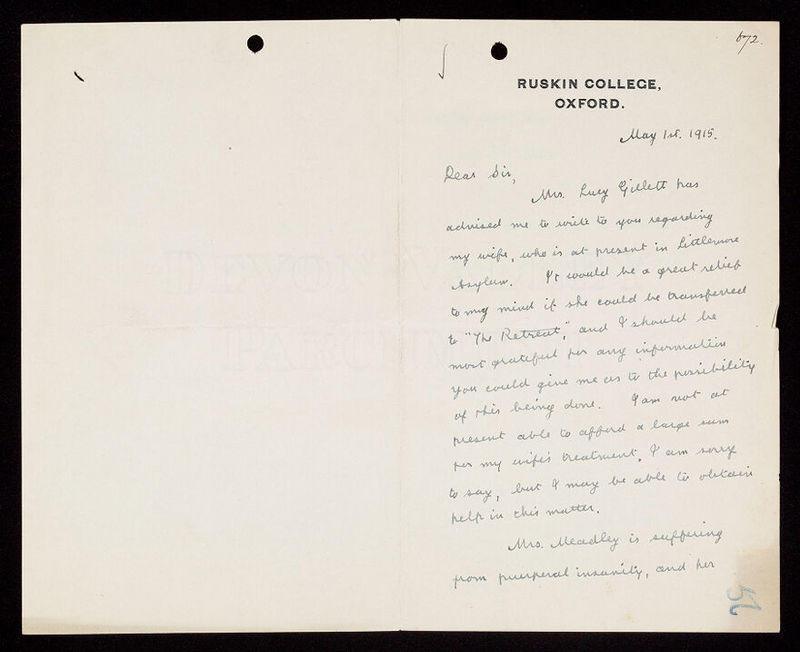 672.
RUSKIN COLLEGE,
OXFORD.
May 1st. 1915.
Dear Sir,
Mrs. Lucy Gillett has
advised me to write to you regarding
my wife, who is at present in Littlemore
Asylum. It would be a great relief
to my mind if she could be transferred
to "The Retreat", and I should be
most grateful for any information
you could give me as to the possibility
of this being done. I am not at
present able to afford a large sum
for my wife's treatment, I am sorry
to say, but I may be able to obtain
help in this matter.
Mrs. Meadley is suffering
from puerperal insanity, and her
52